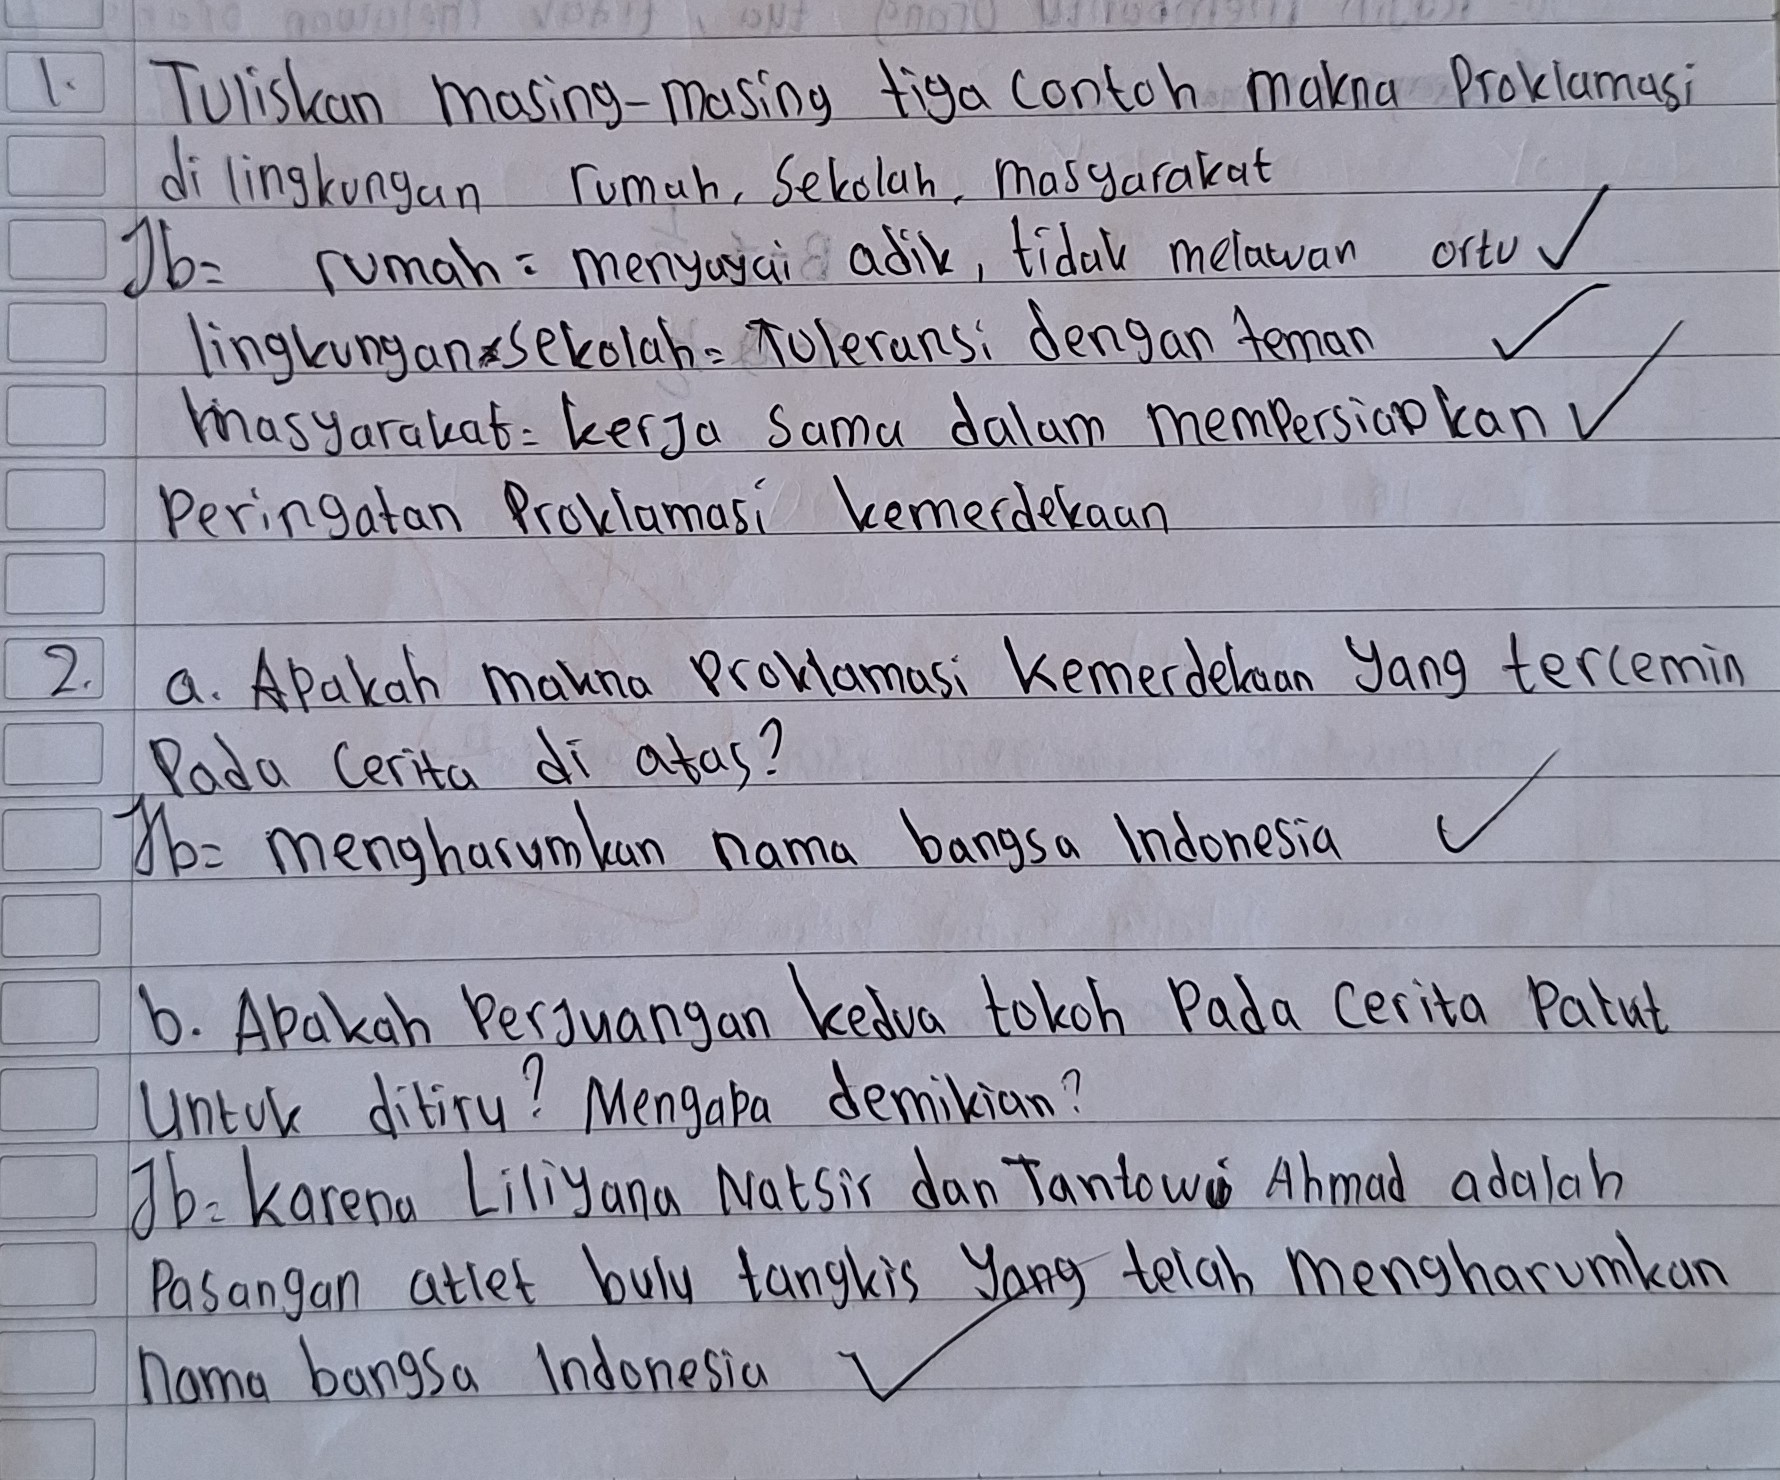 1. Tuliskan masing-masing tiga contoh makna Proklamasi
di lingkungan rumah, Sekolah, masyarakat
Jb= rumah = menyayai adik, tidak melawan ortu ✓
lingkungan sekolah = Toleransi dengan teman ✓
masyarakat = kerja sama dalam mempersiapkan ✓
Peringatan Proklamasi kemerdekaan
2. a. Apakah makna Proklamasi Kemerdekaan yang tercemin
Pada Cerita di atas?
Jb= mengharumkan nama bangsa Indonesia ✓
b. Apakah Perjuangan kedua tokoh Pada Cerita Patut
Untuk ditiru? Mengapa demikian?
Jb= karena Liliyana Natsir dan Tantowi Ahmad adalah
Pasangan atlet bulu tangkis yang telah mengharumkan
nama bangsa Indonesia ✓